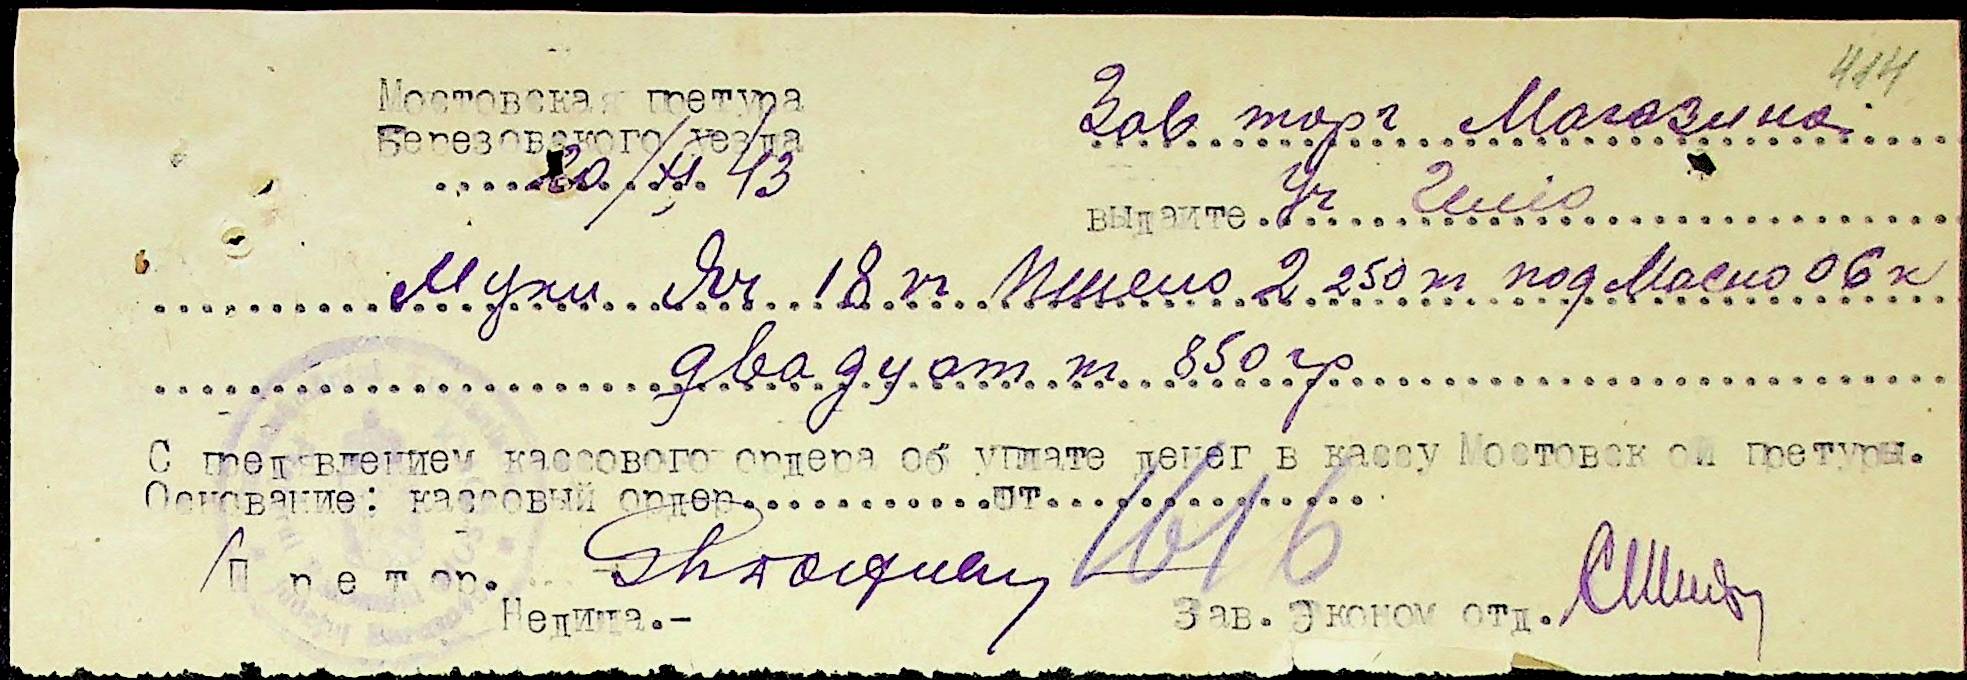 414
Мостовская претура
Березовского уезда
20/XI. 43
Зав торг Магазина
выдаите Уч
Муки Яч 18 кг Пшено 2 250 кг под Масло 06 к
двадцат кг 850 гр
С пред'влением кассового ордера об уплате денег в кассу Мостовск ой претуры.
Основание: кассовый ордер............от...............
1616
/П р е т ор.
Недица.-
Зав. Эконом отд.